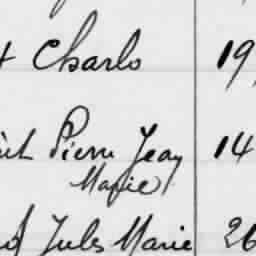 Charlo 19
Pierre Jean 14
Marie
Jules Marie 26